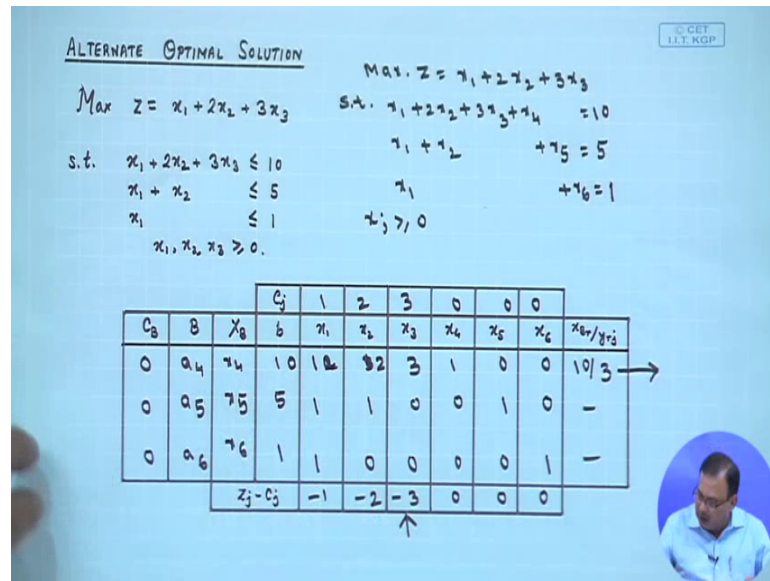 © CET
I.I.T. KGP
ALTERNATE OPTIMAL SOLUTION
Max z = x₁ + 2x₂ + 3x₃
s.t. x₁ + 2x₂ + 3x₃ ≤ 10
x₁ + x₂ ≤ 5
x₁ ≤ 1
x₁, x₂, x₃ ≥ 0.
Max. Z = x₁ + 2x₂ + 3x₃
s.t. x₁ + 2x₂ + 3x₃ + x₄ = 10
x₁ + x₂ + x₅ = 5
x₁ + x₆ = 1
xⱼ ≥ 0
Cj 1 2 3 0 0 0
C_B B X_B b x₁ x₂ x₃ x₄ x₅ x₆ x_Br/y_rj
0 a₄ x₄ 10 1 2 3 1 0 0 10/3 →
0 a₅ x₅ 5 1 1 0 0 1 0 -
0 a₆ x₆ 1 1 0 0 0 0 1 -
Zj - Cj -1 -2 -3 0 0 0
↑